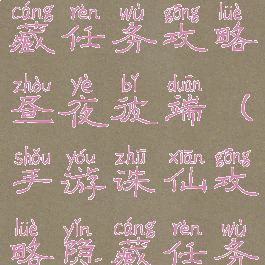 cáng rèn wù gōng lüè
藏任务攻略
zhòu yè bǐ duān
昼夜彼端（
shǒu yóu zhū xiān gōng
手游诛仙攻
lüè yǐn cáng rèn wù
略隐藏任务